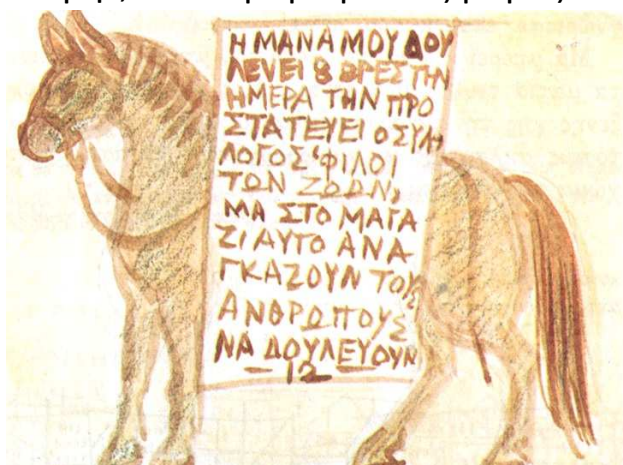 Η ΜΑΝΑ ΜΟΥ ΔΟΥ
ΛΕΥΕΙ 8 ΩΡΕΣ ΤΗΝ
ΗΜΕΡΑ ΤΗΝ ΠΡΟ
ΣΤΑΤΕΥΕΙ Ο ΣΥΛ
ΛΟΓΟΣ "ΦΙΛΟΙ
ΤΩΝ ΖΩΩΝ,
ΜΑ ΣΤΟ ΜΑΓΑ
ΖΙ ΑΥΤΟ ΑΝΑ
ΓΚΑΖΟΥΝ ΤΟΥΣ
ΑΝΘΡΩΠΟΥΣ
ΝΑ ΔΟΥΛΕΥΟΥΝ
– 12 –